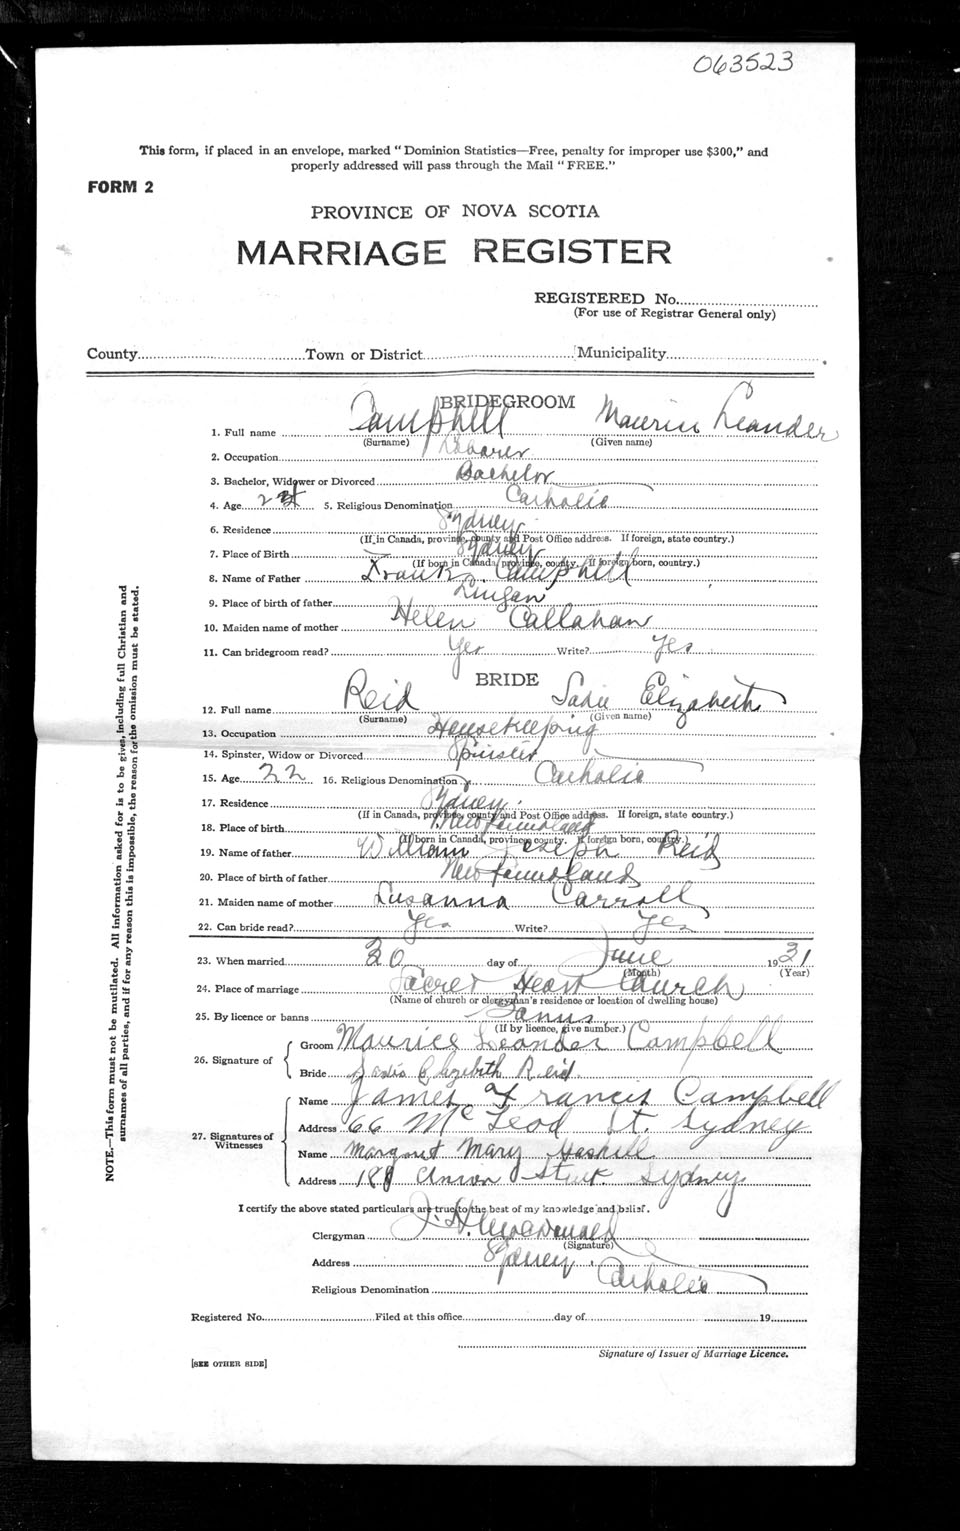 063523
This form, if placed in an envelope, marked "Dominion Statistics—Free, penalty for improper use $300," and
properly addressed will pass through the Mail "FREE."
FORM 2
PROVINCE OF NOVA SCOTIA
MARRIAGE REGISTER
REGISTERED No.
(For use of Registrar General only)
County Town or District Municipality
BRIDEGROOM
1. Full name Campbell Maurice Leander
(Surname) (Given name)
2. Occupation Labourer
3. Bachelor, Widower or Divorced Bachelor
4. Age 5. Religious Denomination Catholic
6. Residence Sydney
(If in Canada, province, county and Post Office address. If foreign, state country.)
7. Place of Birth Sydney
(If born in Canada, province, county. If foreign born, country.)
8. Name of Father Frank Campbell
9. Place of birth of father Lingan
10. Maiden name of mother Helen Callahan
11. Can bridegroom read? Yes Write? Yes
BRIDE
12. Full name Reid Sadie Elizabeth
(Surname) (Given name)
13. Occupation Housekeeping
14. Spinster, Widow or Divorced Spinster
15. Age 22 16. Religious Denomination Catholic
17. Residence Sydney
(If in Canada, province, county and Post Office address. If foreign, state country.)
18. Place of birth Newfoundland
(If born in Canada, province county. If foreign born, country.)
19. Name of father William Joseph Reid
20. Place of birth of father Newfoundland
21. Maiden name of mother Susanna Carroll
22. Can bride read? Yes Write? Yes
23. When married 30 day of June 1931
(Month) (Year)
24. Place of marriage Sacred Heart Church
(Name of church or clergyman's residence or location of dwelling house)
25. By licence or banns Banns
(If by licence, give number.)
26. Signature of
Groom Maurice Leander Campbell
Bride Sadie Elizabeth Reid
27. Signatures of Witnesses
Name James Francis Campbell
Address 66 McLeod St. Sydney
Name Margaret Mary Haskill
Address Union Street Sydney
I certify the above stated particulars are true to the best of my knowledge and belief.
Clergyman J. H. MacDonald
(Signature)
Address Sydney
Religious Denomination Catholic
Registered No. Filed at this office day of 19
Signature of Issuer of Marriage Licence.
[SEE OTHER SIDE]
NOTE.—This form must not be mutilated. All information asked for is to be given, including full Christian and
surnames of all parties, and if for any reason this is impossible, the reason for the omission must be stated.